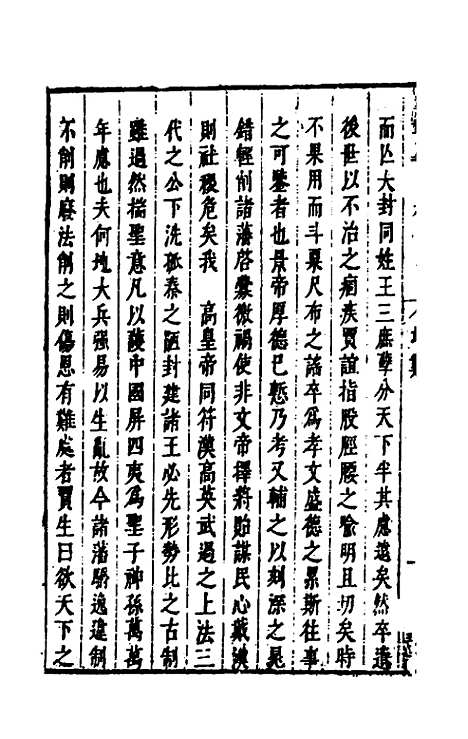 而丛大封同姓王三庶孽分天下半其慮遠矣然卒遺
後世以不治之痼疾賈誼指股脛腰之喻明且切矣時
不果用而斗粟尺布之謠卒爲孝文盛德之累斯往事
之可鑒者也景帝厚德已慙乃考又輔之以刻深之晁
錯輕削諸藩啓釁徼禍使非文帝擇將貽謀民心戴漢
則社稷危矣我　高皇帝同符漢高英武過之上法三
代之公下洗孤秦之陋封建諸王必先形勢比之古制
雖過然揣聖意凡以護中國屏四夷爲聖子神孫萬萬
年慮也夫何地大兵强易以生亂故今諸藩驕逸違制
不削則廢法削之則傷恩有難處者賈生曰欲天下之